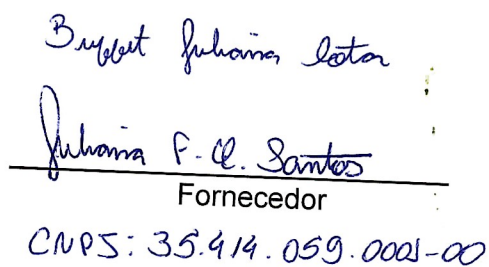 Buffet Juliana Cotor
Juliana F. Q. Santos
Fornecedor
CNPJ: 35.414.059.0001-00